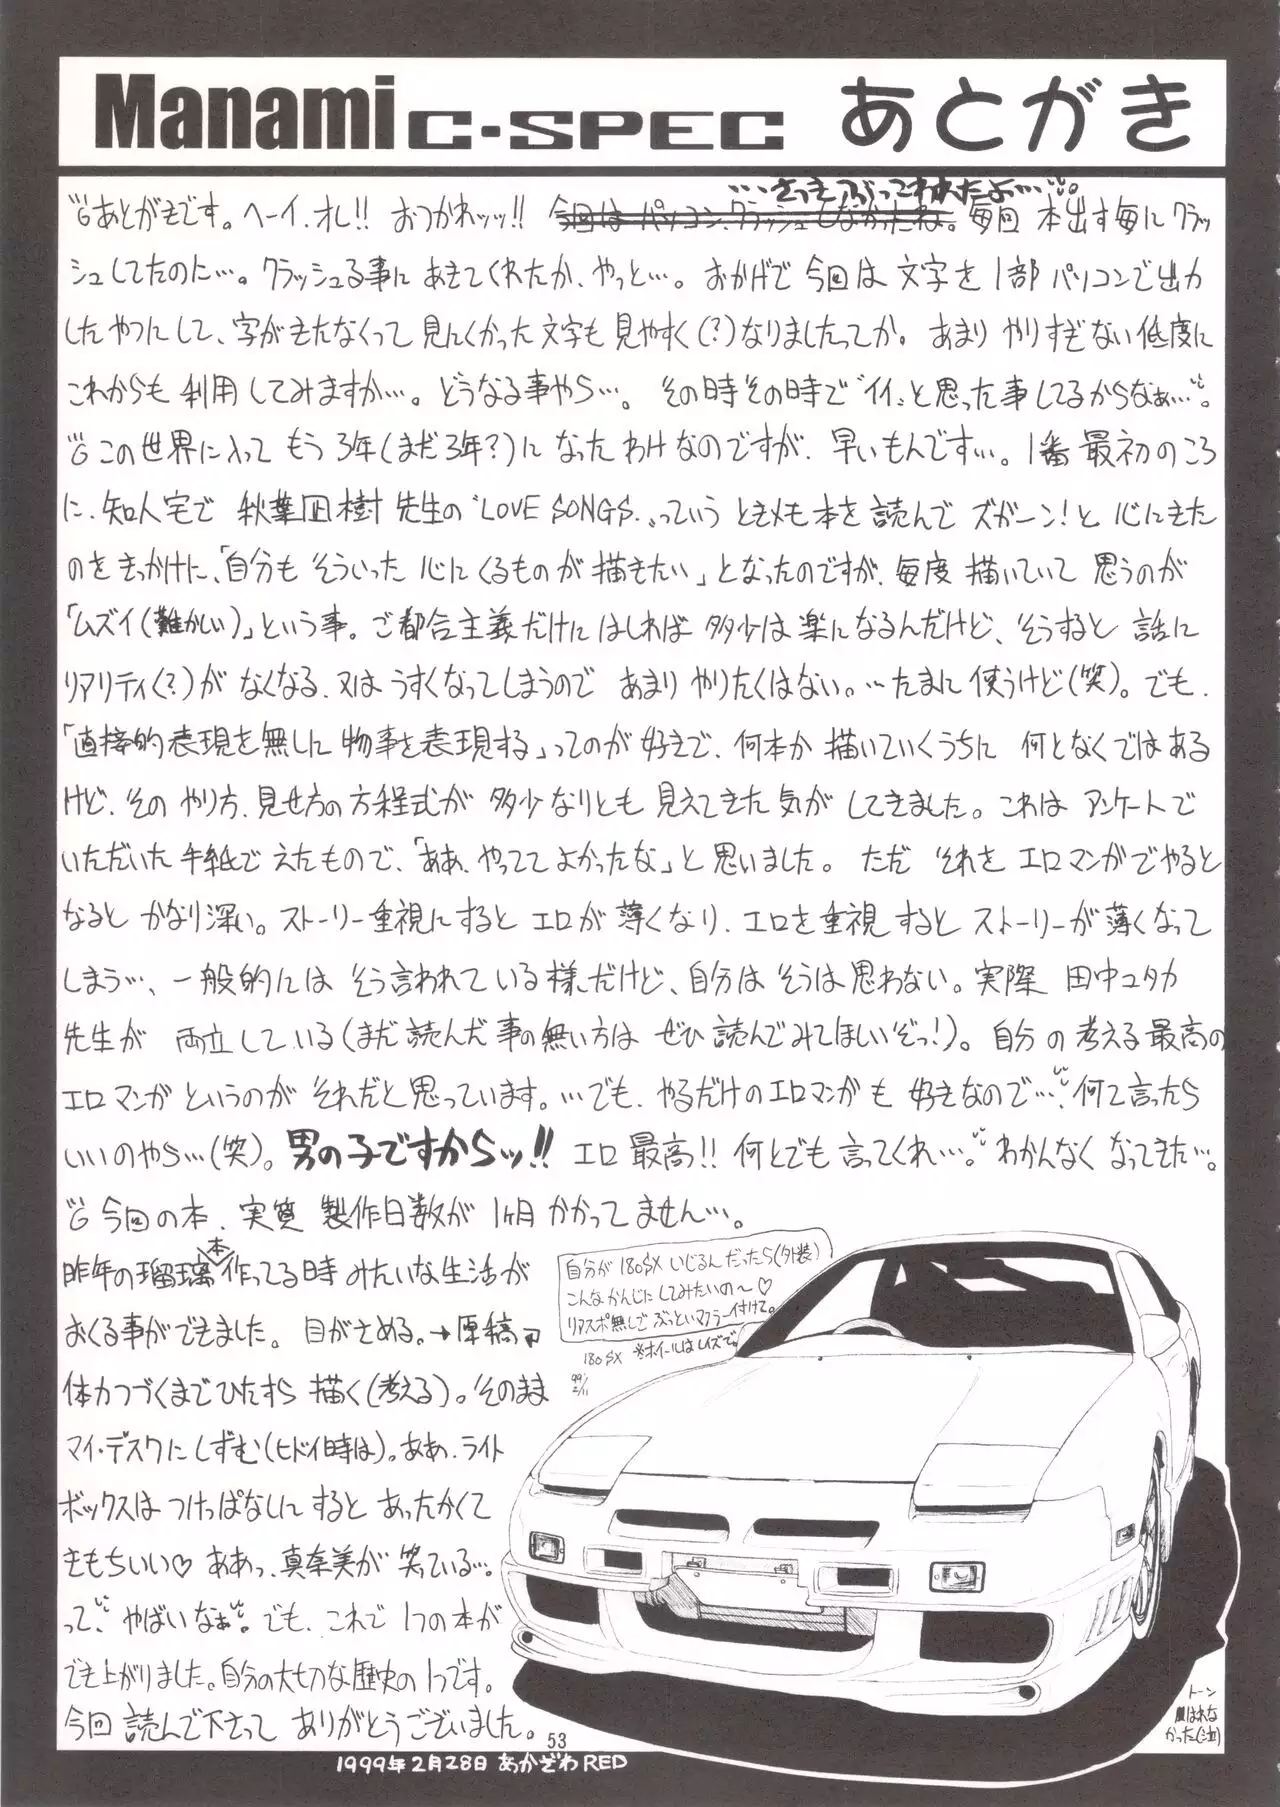 Manami C-SPEC あとがき
…さっきぶっこわれたよ…。
あとがきです。ヘーイ、オレ!! おつかれッッ!! 今回はパソコンクラッシュしなかったね。毎回 本出す毎にクラッ
シュしてたのに…。クラッシュる事に あきてくれたか、やっと…。おかげで 今回は 文字を 1部 パソコンで出力
したやつにして、字がきたなくって 見にくかった 文字も 見やすく(?)なりましたってか。あまり やりすぎない低度に
これからも 利用してみますか…。どうなる事やら…。その時その時で〝イイ〟と思った事してるからなぁ…。
この世界に入って もう3年(まだ3年?)に なったわけなのですが、早いもんです…。1番 最初のころ
に、知人宅で 秋葉凪樹 先生の〝LOVE SONGS〟っていう ときメモ本を 読んで ズガーン!と 心にきた
のをきっかけに、「自分も そういった 心にくるものが 描きたい」となったのですが、毎度 描いていて 思うのが
「ムズイ(難かしい)」という事。ご都合主義だけに はしれば 多少は 楽になるんだけど、そうすると 話に
リアリティ(?)が なくなる、又は うすくなってしまうので あまり やりたくはない。…たまに 使うけど(笑)。でも、
「直接的表現を無しに 物事を表現する」ってのが 好きで、何本か 描いていくうちに 何となくではある
けど、その やり方、見せ方の 方程式が 多少なりとも 見えてきた 気が してきました。これは アンケートで
いただいた 手紙で えたもので、「ああ、やってて よかったな」と 思いました。ただ それを エロマンガでやると
なると かなり深い。ストーリー重視にすると エロが 薄くなり、エロを重視すると ストーリーが 薄くなって
しまう…、一般的には そう言われている様だけど、自分は そうは思わない。実際 田中ユタカ
先生が 両立している(まだ 読んだ事の無い方は ぜひ 読んでみてほしいぞっ!)。自分の考える最高の
エロマンガというのが それだと思っています。…でも、やるだけのエロマンガも 好きなので…、何て言ったら
いいのやら…(笑)。男の子ですからッ!! エロ 最高!! 何とでも 言ってくれ…。わかんなく なってきた…。
今回の本、実質 製作日数が 1ヶ月 かかってません…。
昨年の瑠璃本作ってる時 みたいな生活が
おくる事ができました。目がさめる。→原稿
体力つづくまでひたすら 描く(考える)。そのまま
マイ・デスクに しずむ(ヒドイ時は)。ああ、ライト
ボックスは つけっぱなしに すると あったかくて
きもちいい♡ ああっ、真奈美が 笑っている…
って、やばいなぁ。でも、これで 1つの本が
でき上がりました。自分の大切な歴史の1つです。
今回 読んで下さって ありがとうございました。
自分が 180SX いじるんだったら(外装)
こんなかんじに してみたいの〜♡
リアスポ無しで ぶっといマフラー付けて。
※ホイールはレイズで。
180SX
99'
2/11
トーン
はれな
かった(泣)
53
1999年2月28日 あかざわRED